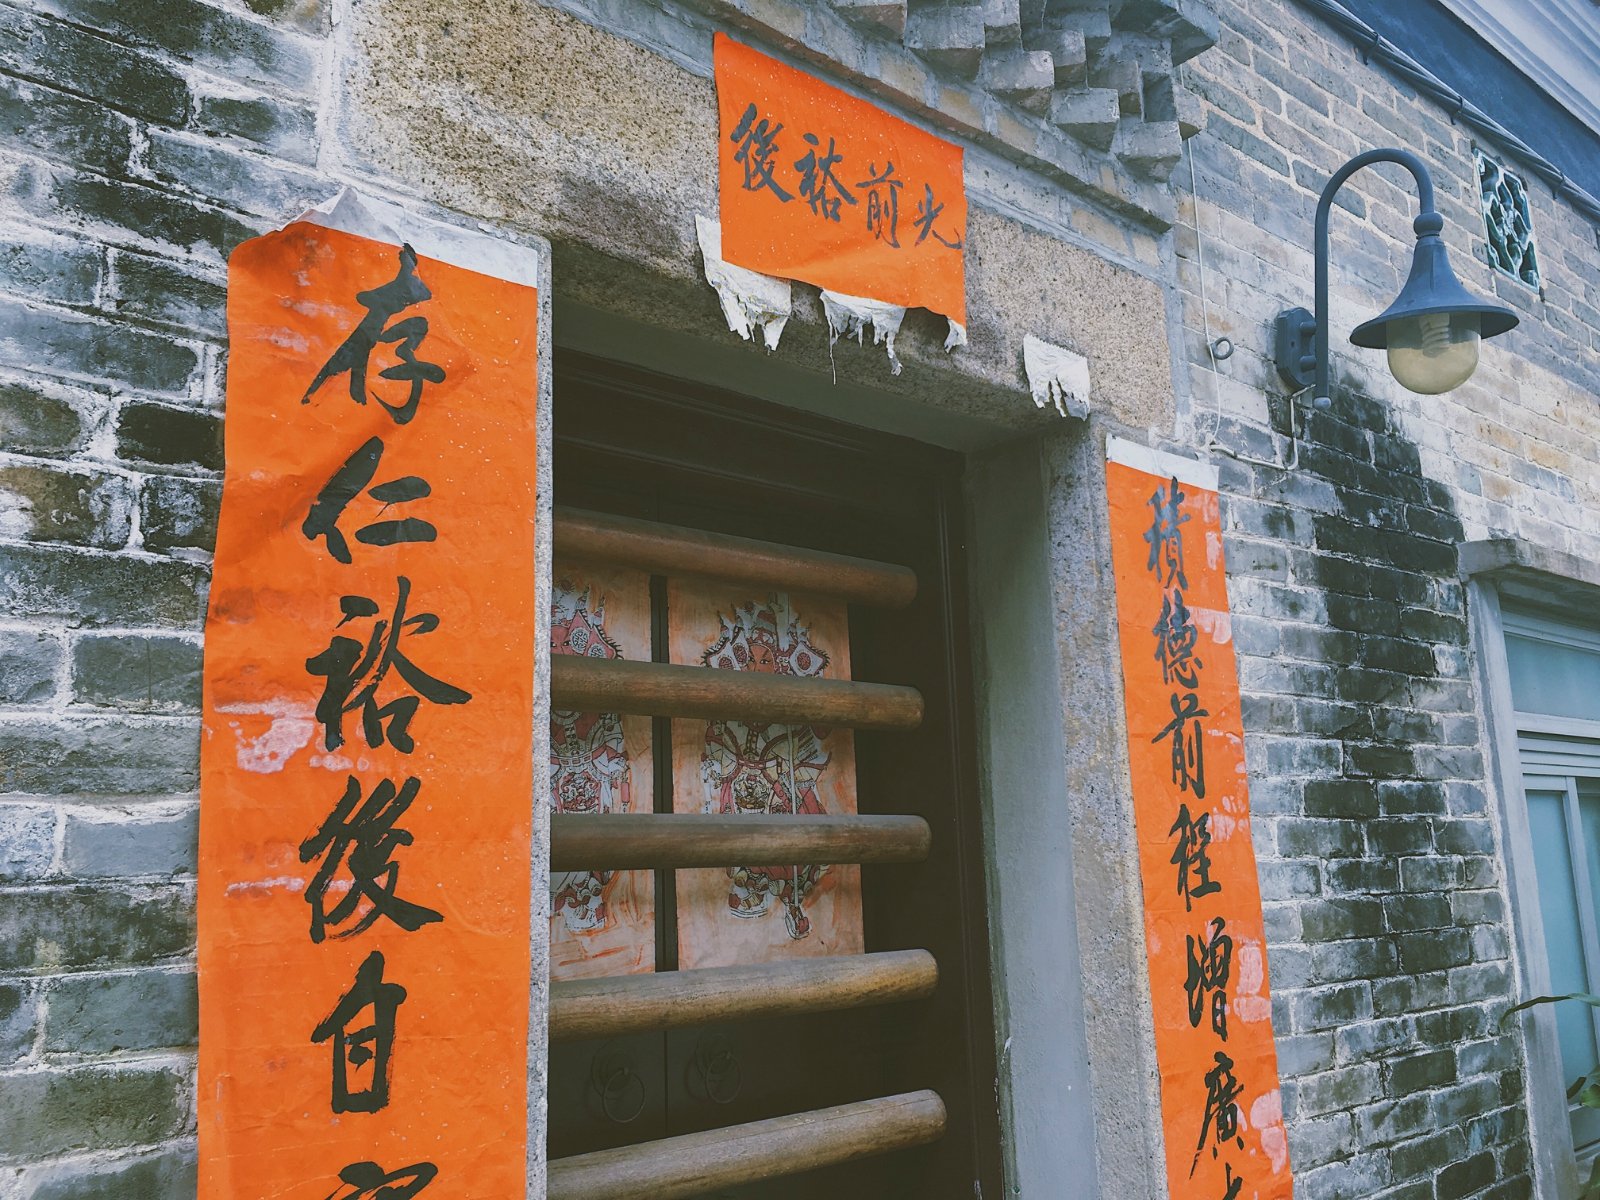 光前裕後
積德前程增廣
存仁裕後自